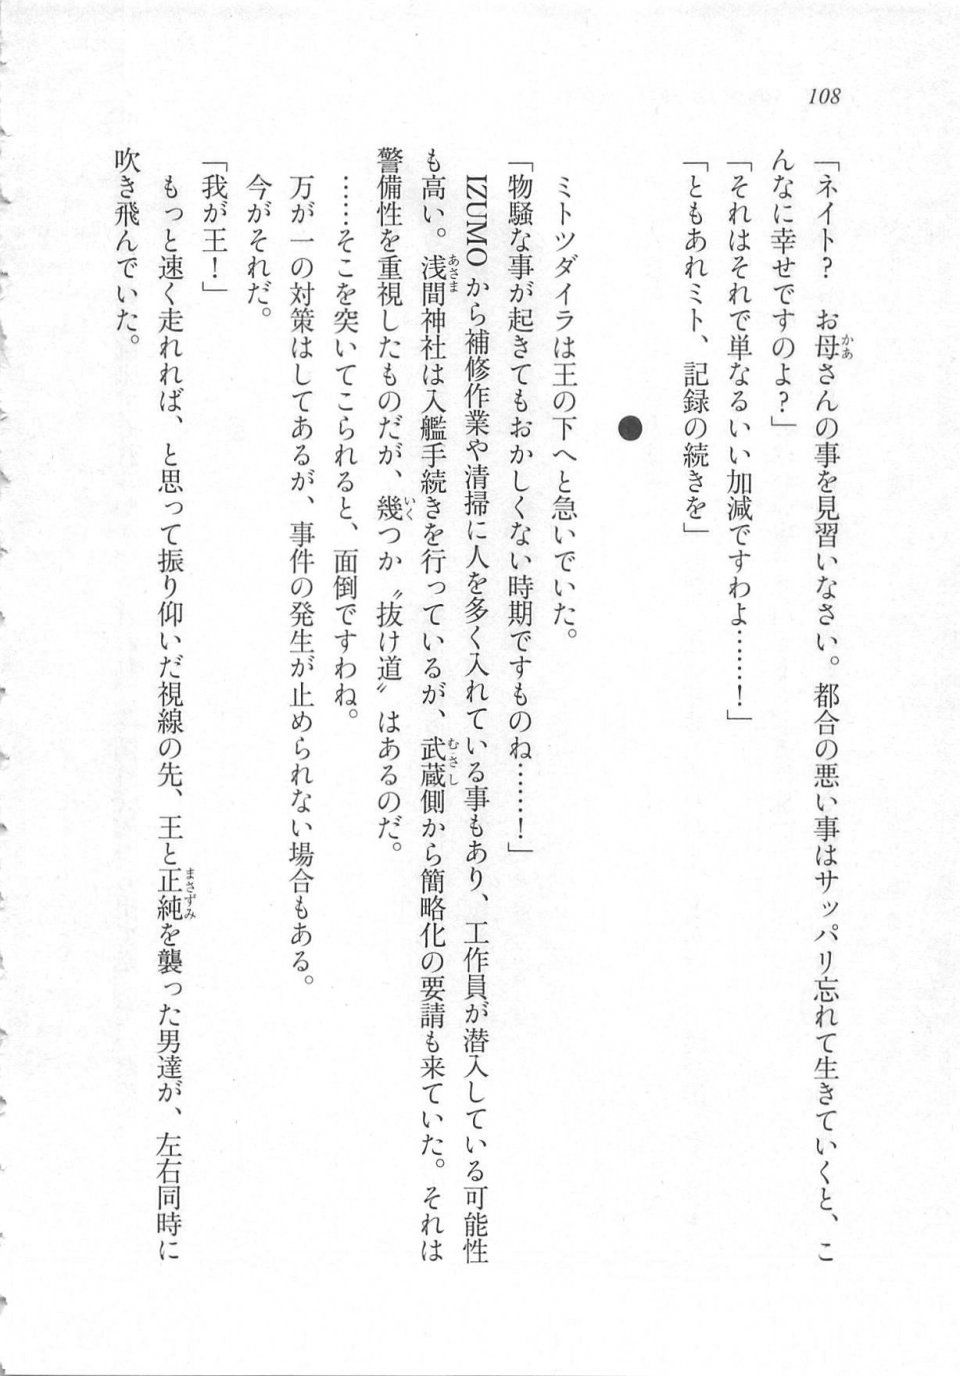 108
「ネイト？　お母さんの事を見習いなさい。都合の悪い事はサッパリ忘れて生きていくと、こ
んなに幸せですのよ？」
「それはそれで単なるいい加減ですわよ……！」
「ともあれミト、記録の続きを」
●
　ミトツダイラは王の下へと急いでいた。
「物騒な事が起きてもおかしくない時期ですものね……！」
　IZUMOから補修作業や清掃に人を多く入れている事もあり、工作員が潜入している可能性
も高い。浅間神社は入艦手続きを行っているが、武蔵側から簡略化の要請も来ていた。それは
警備性を重視したものだが、幾つか〝抜け道〟はあるのだ。
　……そこを突いてこられると、面倒ですわね。
　万が一の対策はしてあるが、事件の発生が止められない場合もある。
　今がそれだ。
「我が王！」
　もっと速く走れれば、と思って振り仰いだ視線の先、王と正純を襲った男達が、左右同時に
吹き飛んでいた。